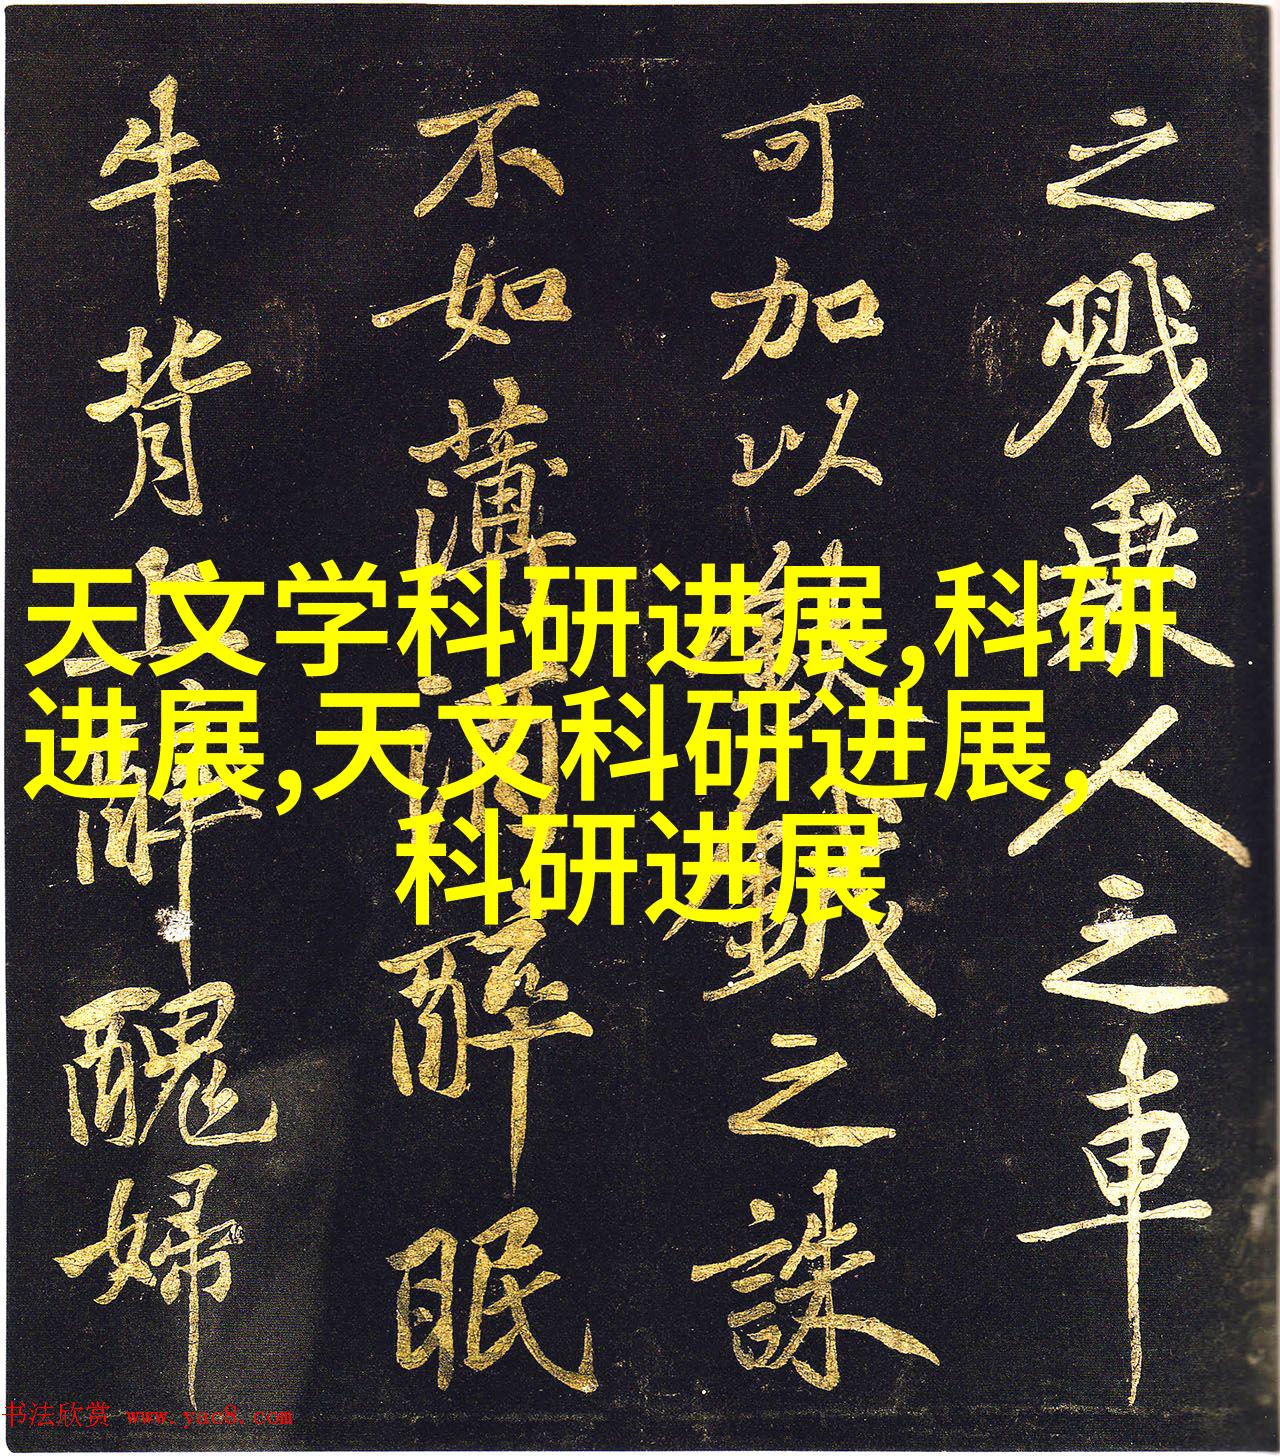 之戮乘人之車
可加以鈇鉞之誅
不如薄酒醉眠
牛背上醉醜婦
天文学科研进展,科研
进展,天文科研进展,
科研进展
书法欣赏 www.yac8.com